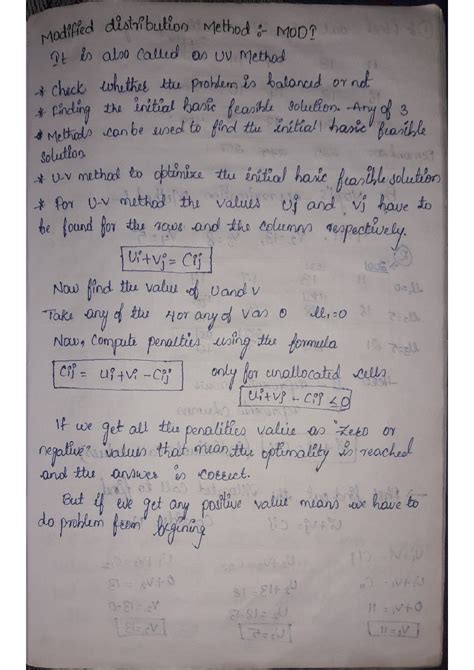 Modified distribution Method :- MODI
It is also called as UV Method
* Check whether the problem is balanced or not
* Finding the initial basic feasible solution. Any of 3
* Methods can be used to find the initial basic feasible
solution
* U-V method to optimize the initial basic feasible solution
* For U-V method the values Uj and Vj have to
be found for the rows and the columns respectively.
Ui+Vj = Cij
Now find the value of U and V
Take any of the U or any of V as 0 U1=0
Now, compute penalties using the formula
Cij = Ui+Vi-Cij only for unallocated cells
Ui+Vj - Cij ≤0
If we get all the penalities value as "zero or
negative" values that mean the optimality is reached
and the answer is correct.
But if we get any positive value means we have to
do problem from begining